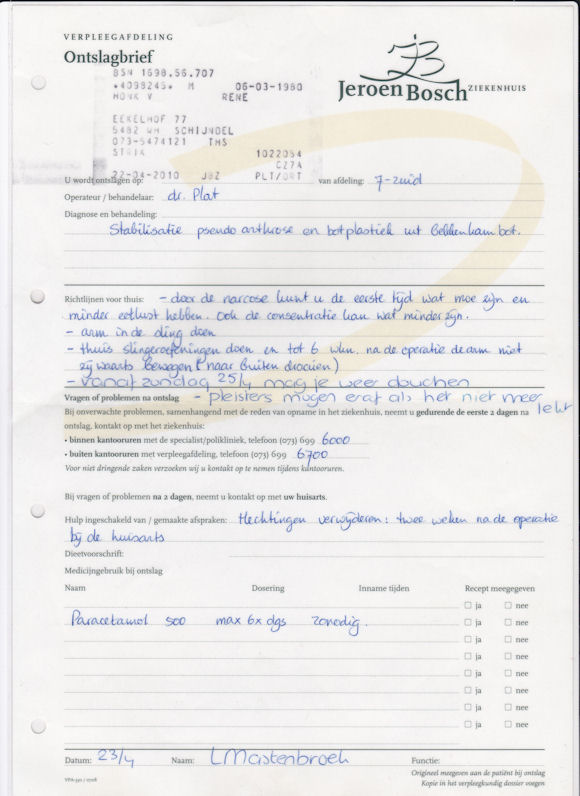 VERPLEEGAFDELING
Ontslagbrief
Jeroen Bosch ZIEKENHUIS
BSN 1698.56.707
*4098245* M 06-03-1980
RENE
EEKELHOF 77
5482 WH SCHIJNDEL
073-5474121 THS
1022054
CZ7A
22-04-2010 JBZ PLT/ORT
U wordt ontslagen op: van afdeling: 7-zuid
Operateur / behandelaar: dr. Plat
Diagnose en behandeling:
Stabilisatie pseudo arthrose en botplastiek uit bekkenkam bot.
Richtlijnen voor thuis: - door de narcose kunt u de eerste tijd wat moe zijn en
minder eetlust hebben. Ook de consentratie kan wat minder zijn.
- arm in de sling doen
- thuis slingeroefeningen doen en tot 6 wkn. na de operatie de arm niet
zijwaarts bewegen (naar buiten draaien)
- vanaf zondag 25/4 mag je weer douchen
Vragen of problemen na ontslag - pleisters mogen eraf als het niet meer
lekt
Bij onverwachte problemen, samenhangend met de reden van opname in het ziekenhuis, neemt u gedurende de eerste 2 dagen na
ontslag, kontakt op met het ziekenhuis:
• binnen kantooruren met de specialist/polikliniek, telefoon (073) 699 6000
• buiten kantooruren met verpleegafdeling, telefoon (073) 699 6700
Voor niet dringende zaken verzoeken wij u kontakt op te nemen tijdens kantooruren.
Bij vragen of problemen na 2 dagen, neemt u kontakt op met uw huisarts.
Hulp ingeschakeld van / gemaakte afspraken: Hechtingen verwijderen: twee weken na de operatie
bij de huisarts
Dieetvoorschrift:
Medicijngebruik bij ontslag
Naam Dosering Inname tijden Recept meegegeven
ja nee
Paracetamol 500 max 6x dgs zonodig. ja nee
ja nee
ja nee
ja nee
ja nee
ja nee
ja nee
Datum: 23/4 Naam: LMastenbroek Functie:
Origineel meegeven aan de patiënt bij ontslag
VPA-391 / 0708 Kopie in het verpleegkundig dossier voegen